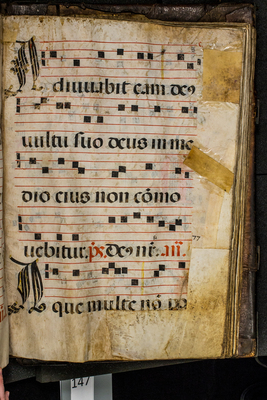 Adiuvabit eam deꝯ
vultu suo deus in me
dio eius non cōmo
vebitur. ps. Deꝯ nr̄. añ.
Aque multe nō po
147